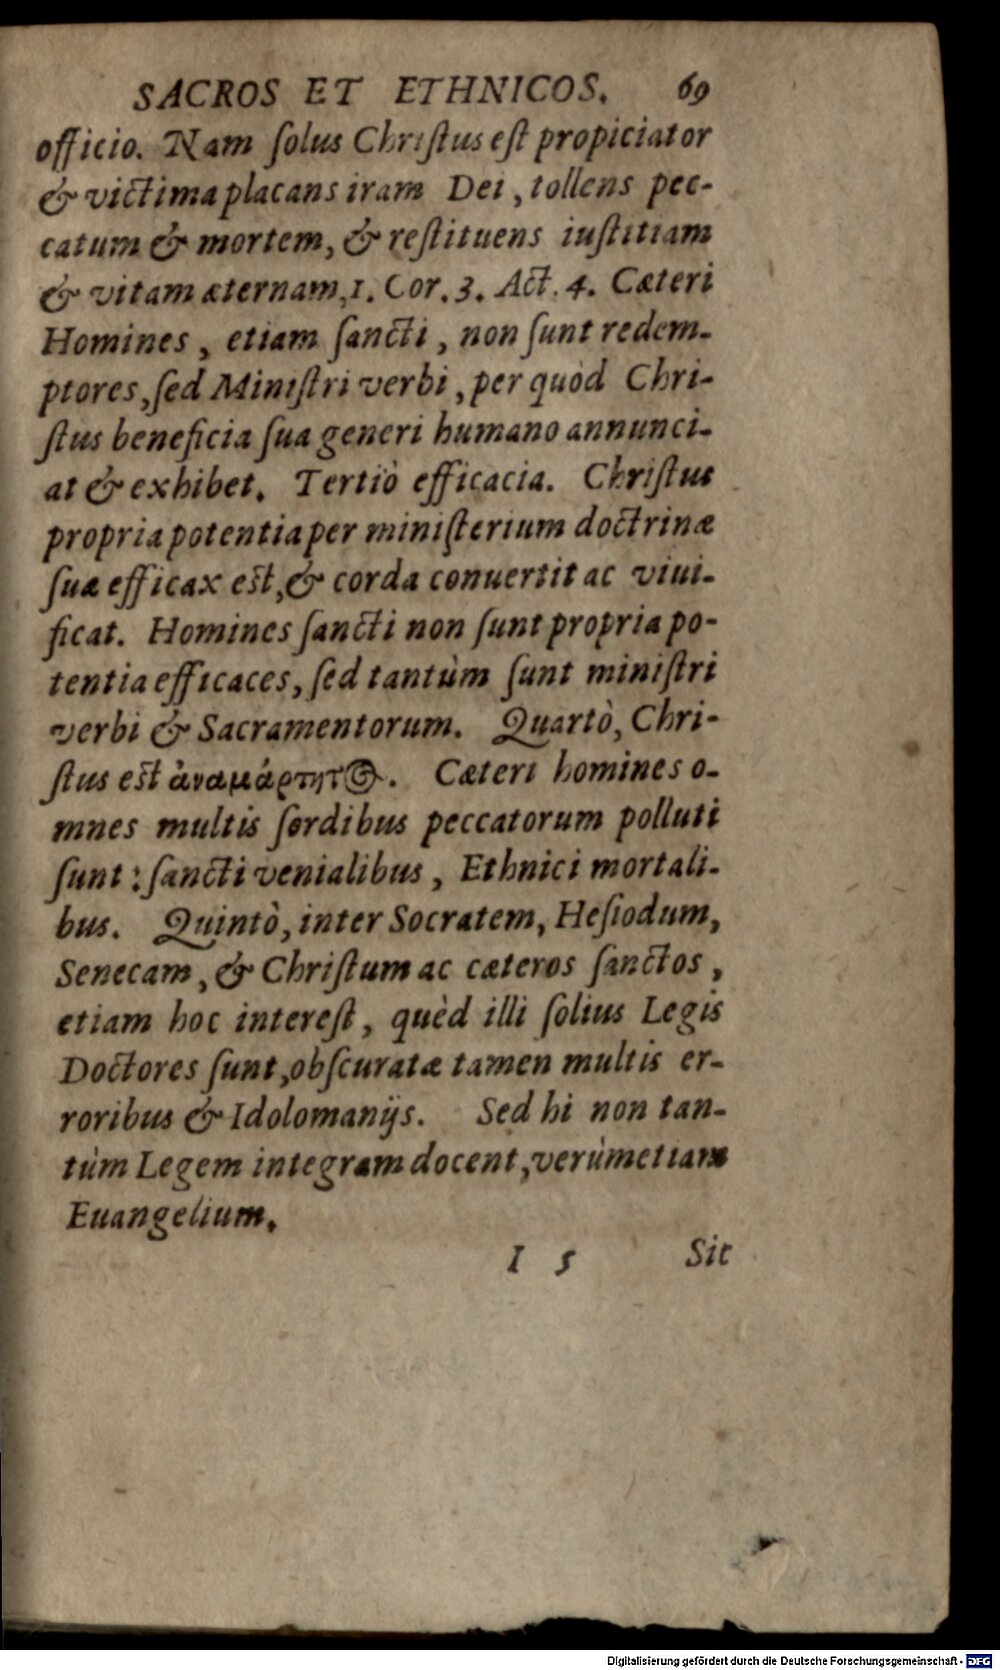 SACROS ET ETHNICOS. 69
officio. Nam ſolus Chriſtus eſt propiciator
& victima placans iram Dei, tollens pec-
catum & mortem, & reſtituens iuſtitiam
& vitam æternam, 1. Cor. 3. Act. 4. Cæteri
Homines, etiam ſancti, non ſunt redem-
ptores, ſed Miniſtri verbi, per quòd Chri-
ſtus beneficia ſua generi humano annunci-
at & exhibet. Tertiò efficacia. Chriſtus
propria potentia per miniſterium doctrinæ
ſuæ efficax eſt, & corda conuertit ac viui-
ficat. Homines ſancti non ſunt propria po-
tentia efficaces, ſed tantùm ſunt miniſtri
verbi & Sacramentorum. Quartò, Chri-
ſtus eſt ἀναμάρτητος. Cæteri homines o-
mnes multis ſordibus peccatorum polluti
ſunt: ſancti venialibus, Ethnici mortali-
bus. Quintò, inter Socratem, Heſiodum,
Senecam, & Chriſtum ac cæteros ſanctos,
etiam hoc intereſt, quèd illi ſolius Legis
Doctores ſunt, obſcuratæ tamen multis er-
roribus & Idolomanijs. Sed hi non tan-
tùm Legem integram docent, verùm etiam
Euangelium.
I 5 Sit
Digitalisierung gefördert durch die Deutsche Forschungsgemeinschaft - DFG